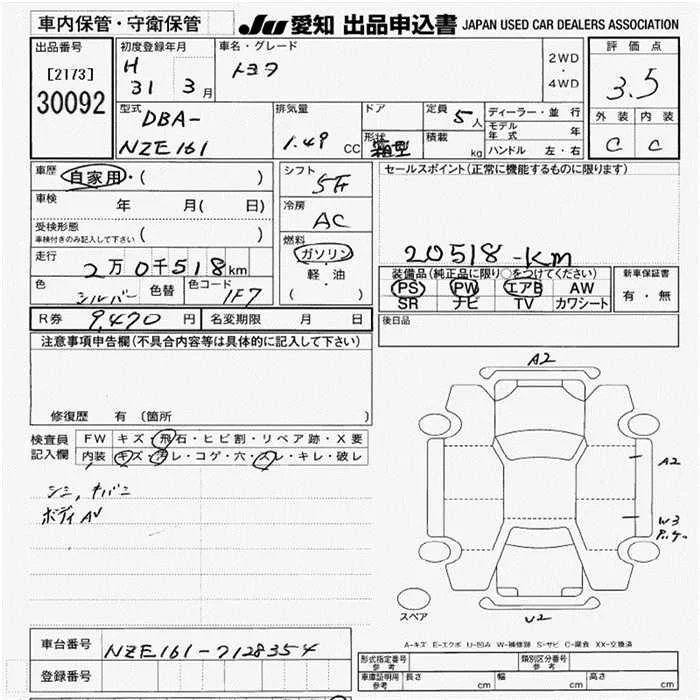 車内保管・守衛保管 JU 愛知 出品申込書 JAPAN USED CAR DEALERS ASSOCIATION
出品番号
[2173]
30092
初度登録年月
H 31 3月
車名・グレード
トヨタ
2WD
・
4WD
評価点
3.5
外装 内装
C C
型式
DBA-
NZE161
排気量
1.49 CC
ドア
形状
箱型
定員
5人
積載
kg
ディーラー・並行
モデル年式 年
ハンドル 左・右
車歴 自家用・( )
車検 年 月( 日)
受検形態
車検付きのみ記入して下さい ( )
走行 2万0千518km
色 シルバー 色替 色コード 1F7
シフト
5F
冷房
AC
燃料
ガソリン
軽・油
( )
セールスポイント(正常に機能するものに限ります)
20518-km
装備品(純正品に限り○をつけてください)
PS PW エアB AW
SR ナビ TV カワシート
新車保証書
有・無
R券 9,470円 名変期限 月 日
後日品
注意事項申告欄(不具合内容等は具体的に記入して下さい)
修復歴 有 〔箇所 〕
検査員記入欄
FW キズ・飛石・ヒビ割・リペア跡・X要
内装 キズ・汚レ・コゲ・穴・スレ・キレ・破レ
シミ,
ボディAU
A2
A2
W3
U2
スペア
A-キズ E-エクボ U-凹み W-補修跡 S-サビ C-腐食 XX-交換済
車台番号 NZE161-7128354
登録番号
形式指定番号 参考
類別区分番号 参考
車庫証明用 参考 長さ cm 幅 cm 高さ cm